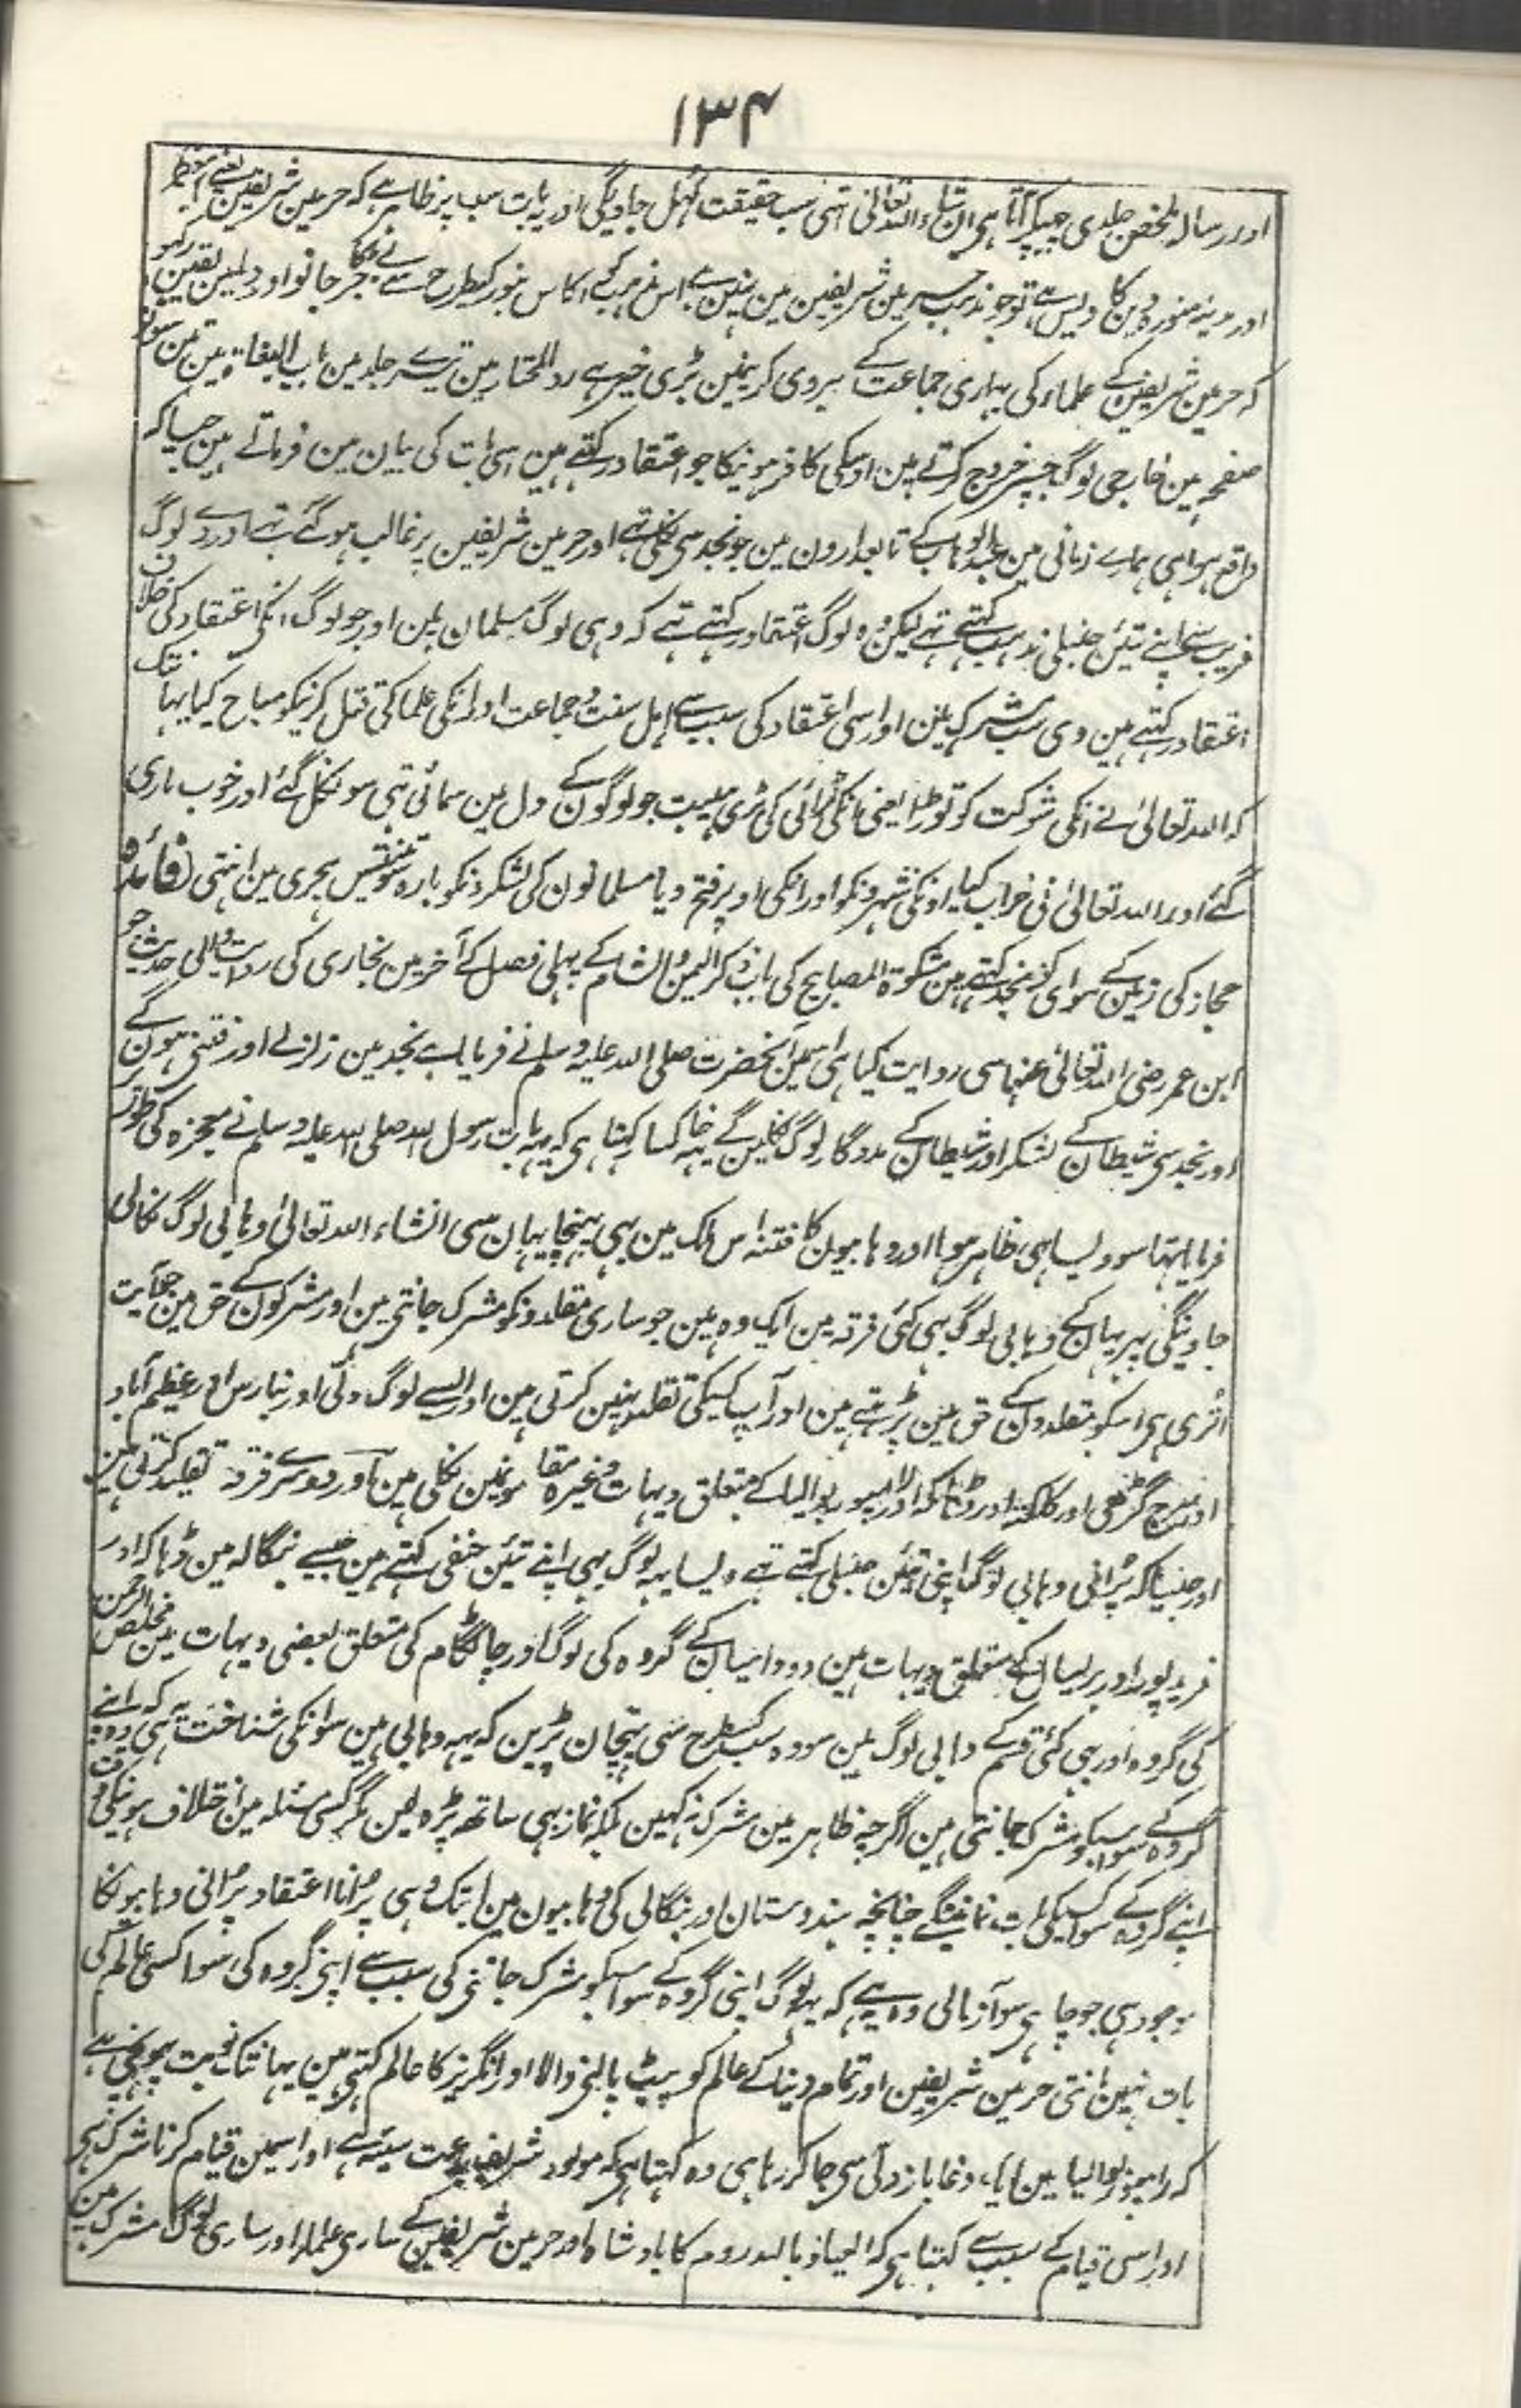 ۱۳۴
اور رسالہ ملخص جلدی چھپکر آتا ہی ان شاء اللہ تعالیٰ تبہی سب حقیقت کہل جاویگی اور یہ بات سب پر ظاہر ہے کہ حرمین شریفین یعنے مکہ معظمہ
اور مدینہ منورہ دین کا دیس ہے تو جو مذہب حرمین شریفین مین نہین ہے اس مذہب کے اکاس بنور کیطرح سے بے جڑ جانو اور دلمین یقین رکہو
کہ حرمین شریفین کے علماء کی بہاری جماعت کے پیروی کرنیمین بڑی خیر ہے رد المختار مین تیسرے جلد مین باب البغاة مین تین سو نو
صفحہ مین خارجی لوگ جسپر خروج کرتے ہین اوسکی کافر ہونیکا جو اعتقاد رکہتے ہین اسی بات کی بیان مین فرماتے ہین جیسا کہ
واقع ہوا ہی ہمارے زمانی مین عبد الوہاب کے تابعدارون مین جو نجد سی نکلی تہے اور حرمین شریفین پر غالب ہو گئے تہے اور وے لوگ
فریب سے اپنے تئین حنبلی مذہب کہتے تہے لیکن وہ لوگ اعتقاد رکہتے تہے کہ وہی لوگ مسلمان ہین اور جو لوگ انکی اعتقاد کی خلاف
اعتقاد رکہتے ہین وی سب مشرک ہین اور اسی اعتقاد کی سبب سے اہل سنت و جماعت اور انکی علما کی قتل کرنیکو مباح کیا یہانتک
کہ اللہ تعالیٰ نے انکی شوکت کو توڑا یعنی انکی لڑائی کی بڑی ہیبت جو لوگون کے دل مین سمائی تہی سو نکل گئے اور خوب ماری
گئے اور اللہ تعالیٰ نی خراب کیا اونکی شہرونکو اور انکی اوپر فتح دیا مسلمانون کی لشکرونکو بارہ سو تینتیس ہجری مین انتہی فائدہ
حجاز کی زمین کے سوای کو نجد کہتے ہین مشکوة المصابیح کی باب ذکر الیمن والشام کے پہلی فصل کے آخر مین بخاری کی روایت والی حدیث جو
ابن عمر رضی اللہ تعالیٰ عنہما سی روایت کیا ہی اسمین آنحضرت صلی اللہ علیہ وسلم نے فرمایا ہے نجد مین زلزلے اور فتنی ہون گے
اور نجد سی شیطان کے لشکر اور شیطان کے مددگار لوگ نکلین گے یہ خاکسار کہتا ہی کہ یہہ بات رسول اللہ صلی اللہ علیہ وسلم نے معجزہ کی طور پر
فرمایا تہا سو ویسا ہی ظاہر ہوا اور وہابیون کا فتنہ اس ملک مین بہی پہنچا یہان سی انشاء اللہ تعالیٰ وہابی لوگ نکالی
جاوینگی پہر یہان کے وہابی لوگ بہی کئی فرقہ ہین ایک وہ ہین جو ساری مقلدونکو مشرک جانتی ہین اور مشرکون کے حق مین جو آیت
اتری ہی اسکو مقلدون کے حق مین پڑہتے ہین اور آپ کسیکی تقلید نہین کرتی ہین اور ایسے لوگ دلّی اور بنارس اور عظیم آباد
اور سورج گڑھی اور کلکتہ اور ڈہاکہ اور رامپور بوالیا کے متعلق دیہات وغیرہ مقامونمین نکلی ہین اور دوسرے فرقہ تقلید کرتی ہین
اور جیسا کہ پرانی وہابی لوگ اپنی تئین حنبلی کہتے تہے ویسا یہہ لوگ بہی اپنے تئین حنفی کہتے ہین جیسے بنگالہ مین ڈہاکہ اور
فریدپور اور بریسال کے متعلق دیہات مین دودامیان کے گروہ کی لوگ اور چاٹگام کی متعلق بعضی دیہات مین مخلص الرحمن
کی گروہ اور بہی کئی قسم کے وہابی لوگ ہین سو وہ سب کسطرح سی پہچان پڑین کہ یہہ وہابی ہین سو انکی شناخت یہہ ہی کہ وہ اپنے
گروہ کے سوا سبکو مشرک جانتی ہین اگرچہ ظاہر مین مشرک نہ کہین بلکہ نماز بہی ساتھ پڑہ لین مگر کسی مسئلہ مین اختلاف ہونیکی وقت
اپنے گروہ کے سوا کسیکی بات نمانینگے چنانچہ ہندوستان اور بنگالی کی وہابیون مین ابتک وہی پرانا اعتقاد پرانی وہابیونکا
موجود ہی جو چاہی سو آزمالی وہ یہ ہے کہ یہہ لوگ اپنی گروہ کے سوا سبکو مشرک جانتی کی سبب سے اپنی گروہ کی سوا کسی عالم کی
بات نہین مانتی حرمین شریفین اور تمام دنیا کے عالم کو پیٹ پالنی والا اور انگریز کا عالم کہتی ہین یہانتک نوبت پہونچی ہے
کہ رامپور بوالیا مین ایک دغاباز دلّی سی جاکر رہا ہی وہ کہتا ہی کہ مولود شریف بدعت سیئہ ہے اور اسمین قیام کرنا شرک ہی
اور اسی قیام کے سبب سے کہتا ہی کہ العیاذ باللہ روم کا بادشاہ اور حرمین شریفین کے ساری علماء اور ساری لوگ مشرک ہین